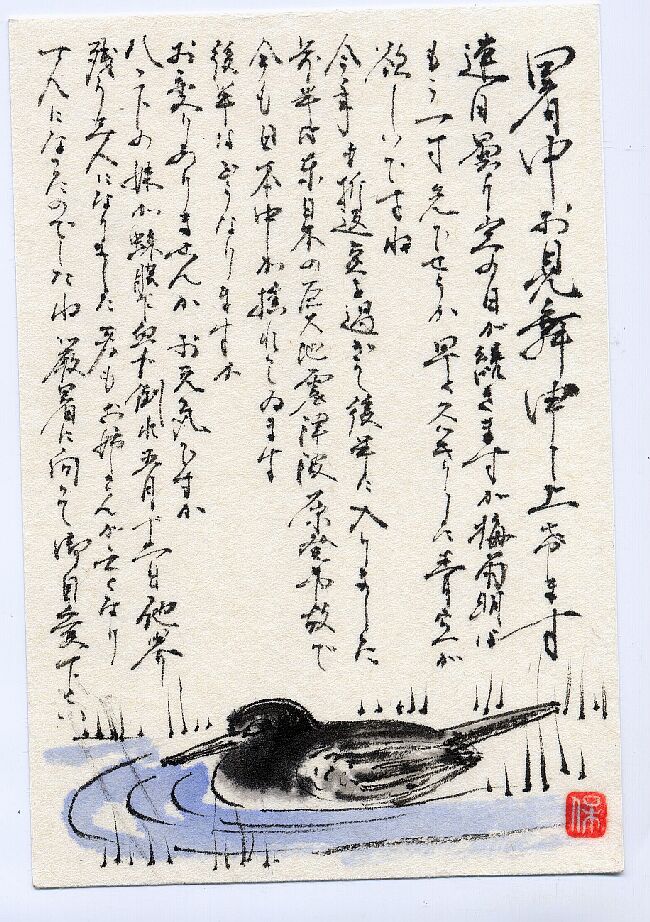 暑中お見舞申し上げます
連日曇り空の日が続きますが梅雨明は
もう一寸先でせうか 早くスッキリした青空が
欲しいですね
今年も折返点を過ぎて後半に入りました
前半は東日本の巨大地震津波原発事故で
今も日本中が揺れてゐます
後半はどうなりますか
お変りありませんか お元気ですか
八つ下の妹が蜘蛛膜下出血で倒れ五月十一日他界
残り三人になりました 君もお姉さんが亡くなり
一人になったのでしたね 厳暑に向って御自愛下さい
保